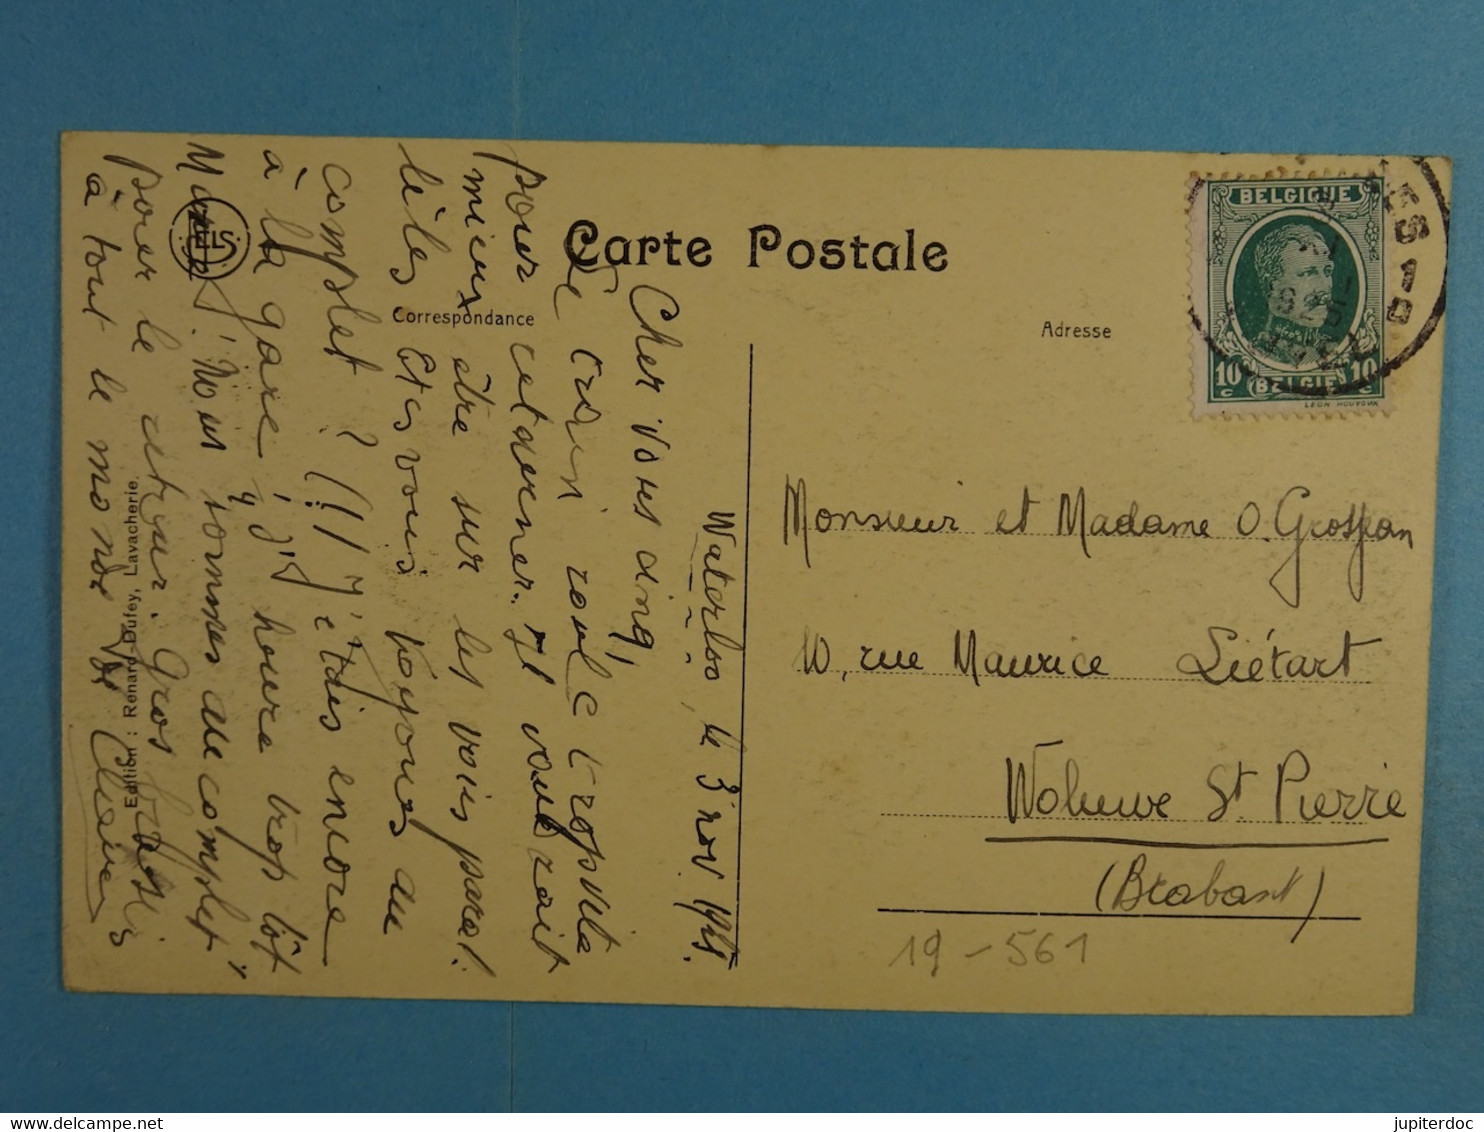 Carte Postale
Correspondance
Adresse
BELGIQUE
10 c
BELGIE
10
1925
1D
Monsieur et Madame O. Grosjean
10, rue Maurice Liétart
Woluwe St Pierre
(Brabant)
19-561
Waterloo, le 3 nov. 1925.
Cher vous cinq,
Le train roule trop vite
pour cet dernier. Il voudrait
mieux être sur les voies paral.
lèles. Etes vous toujours au
complet ? !!! J'étais encore
à la gare, d'heure trop tôt
Nous sommes au complet,
pour le retour. Gros
à tout le monde
Edition : Renard-Dufey, Lavacherie.
NELS
jupiterdoc
delcampe.net